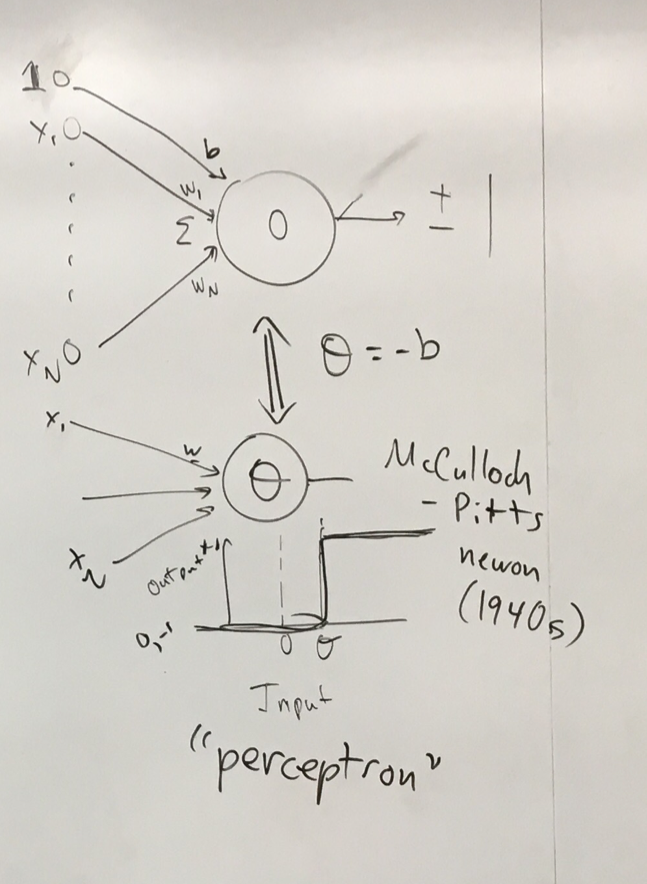 1
b
x₁
w₁
Σ
0
± 1
w_N
x_N
θ = -b
x₁
w
θ
McCulloch
- Pitts
newon
(1940s)
x_N
Output
+1
0,-1
0
θ
Input
"perceptron"